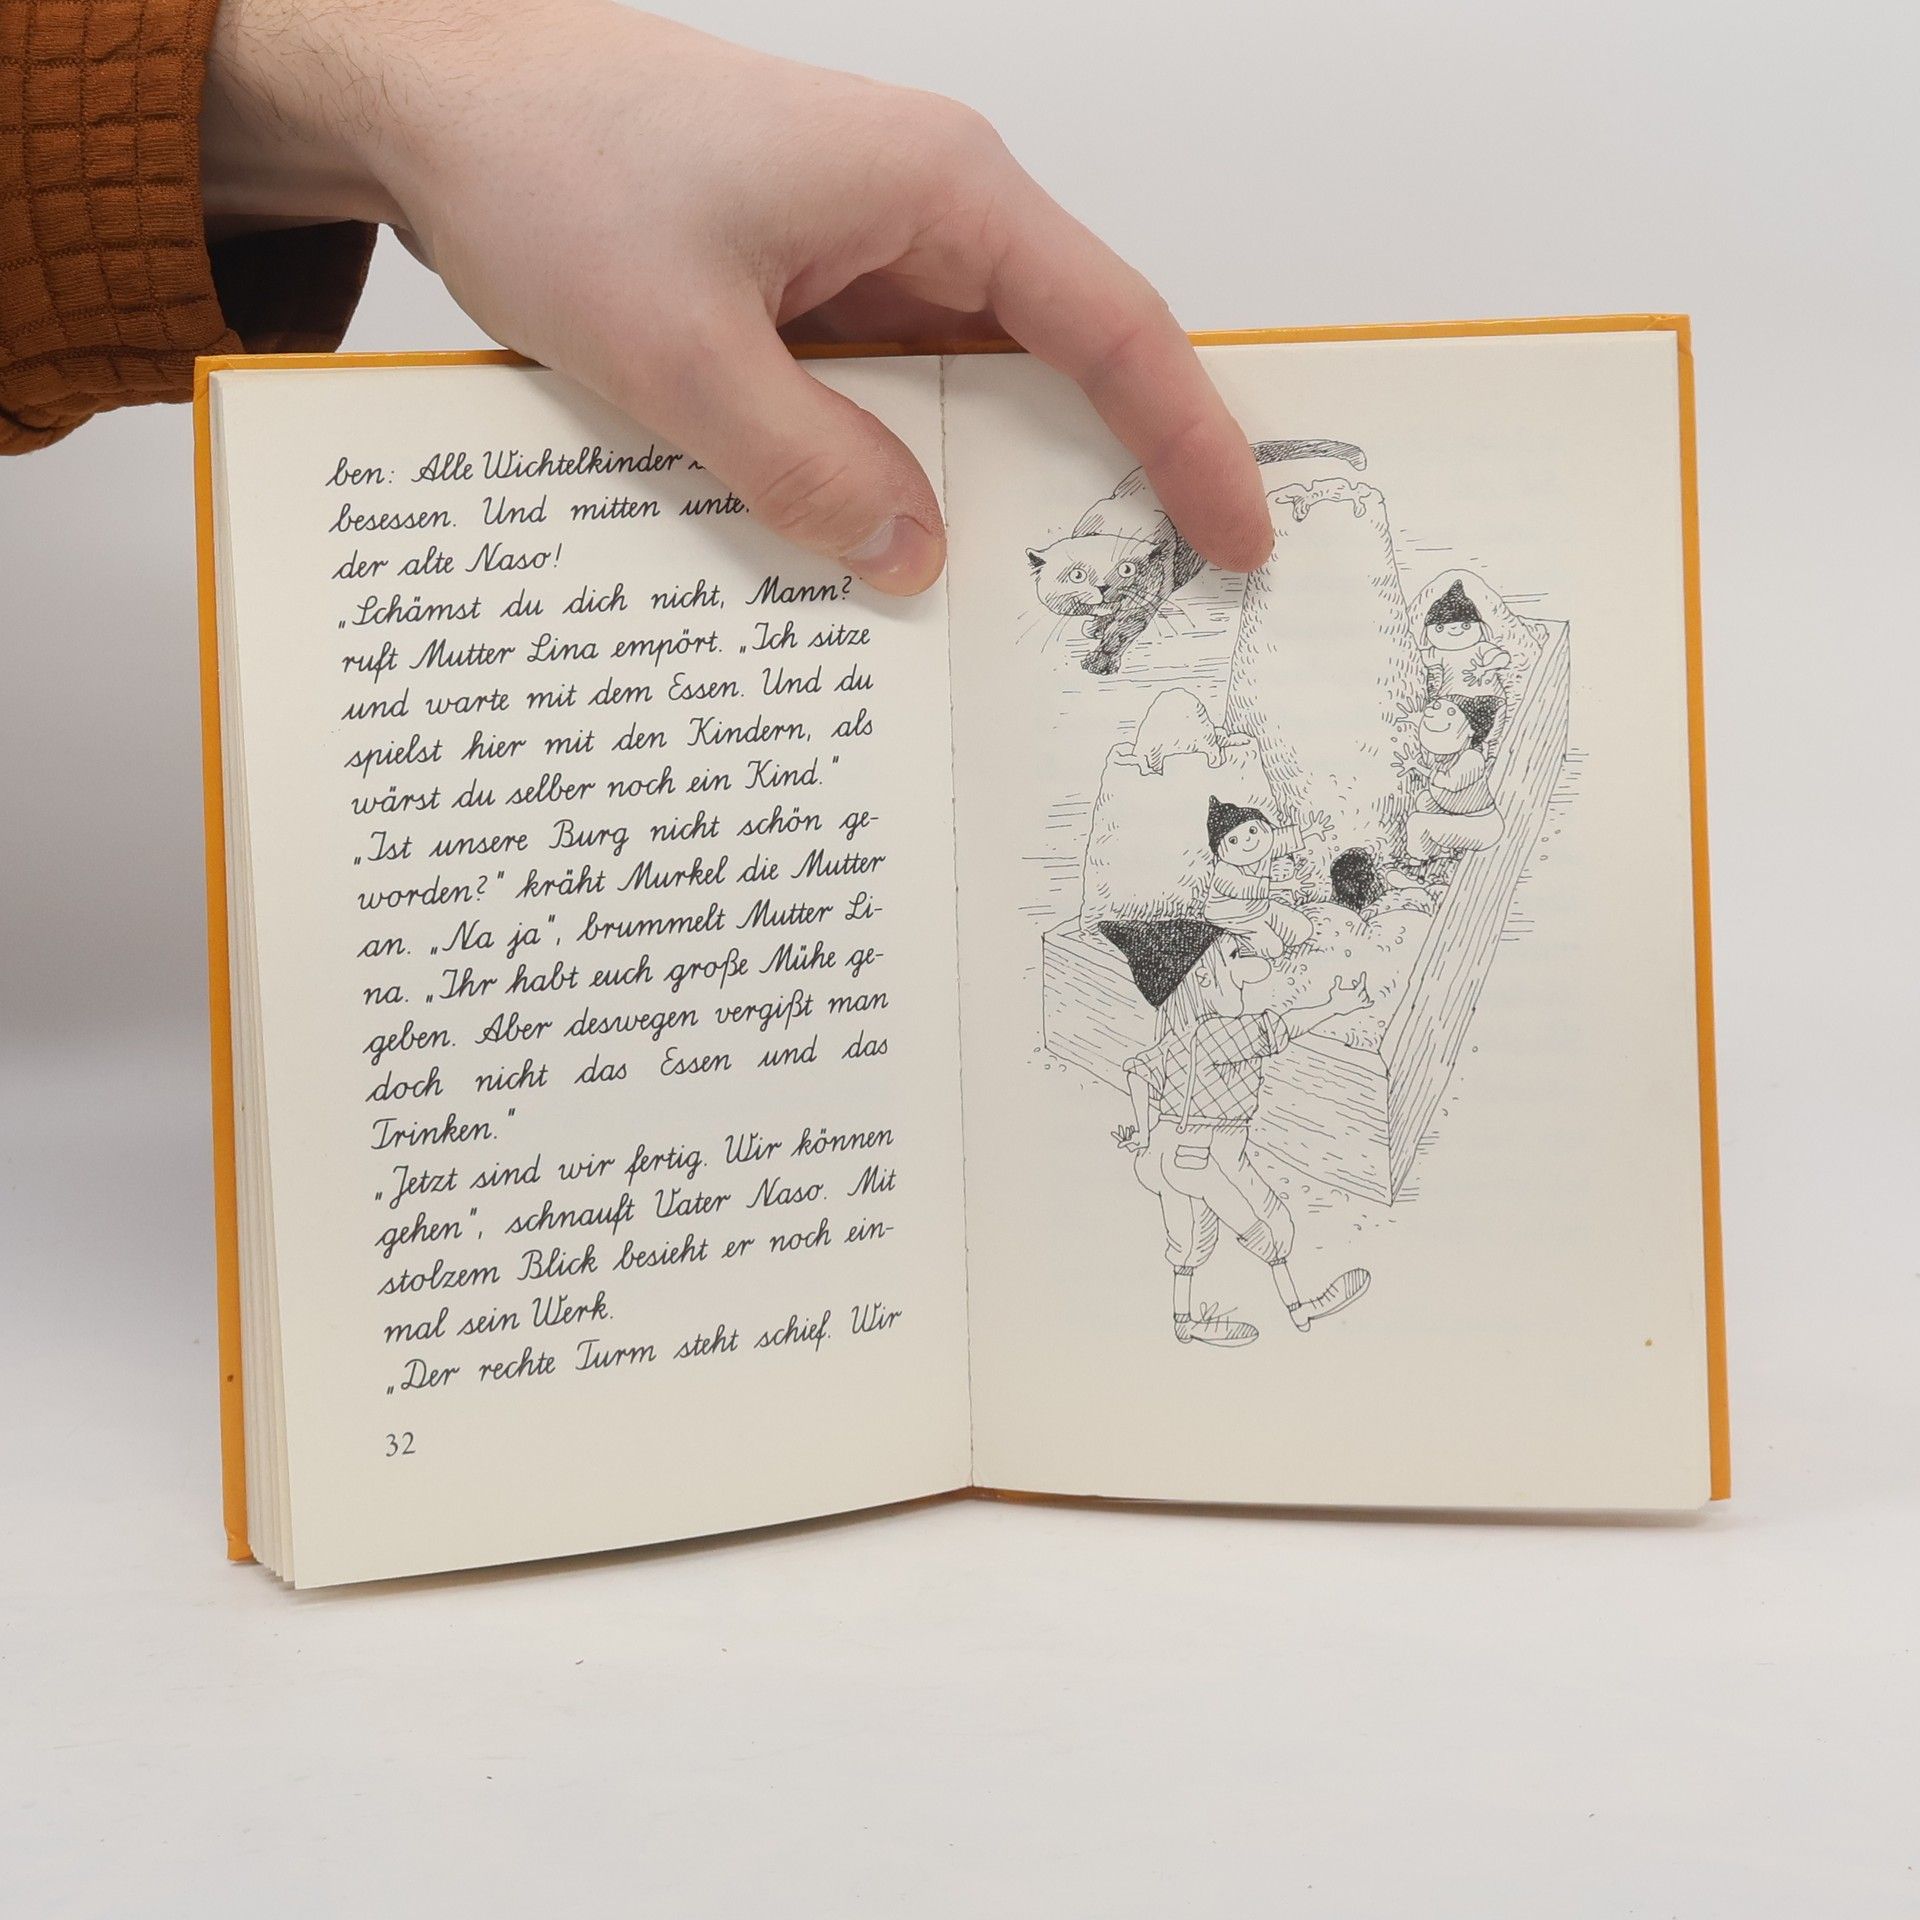 ben: Alle Wichtelkinder
besessen. Und mitten
der alte Naso!
„Schämst du dich nicht, Mann?
ruft Mutter Lina empört. „Ich sitze
und warte mit dem Essen. Und du
spielst hier mit den Kindern, als
wärst du selber noch ein Kind."
„Ist unsere Burg nicht schön ge-
worden?" kräht Murkel die Mutter
an. „Na ja", brummelt Mutter Li-
na. „Ihr habt euch große Mühe ge-
geben. Aber deswegen vergißt man
doch nicht das Essen und das
Trinken."
„Jetzt sind wir fertig. Wir können
gehen", schnauft Vater Naso. Mit
stolzem Blick besieht er noch ein-
mal sein Werk.
„Der rechte Turm steht schief. Wir
32